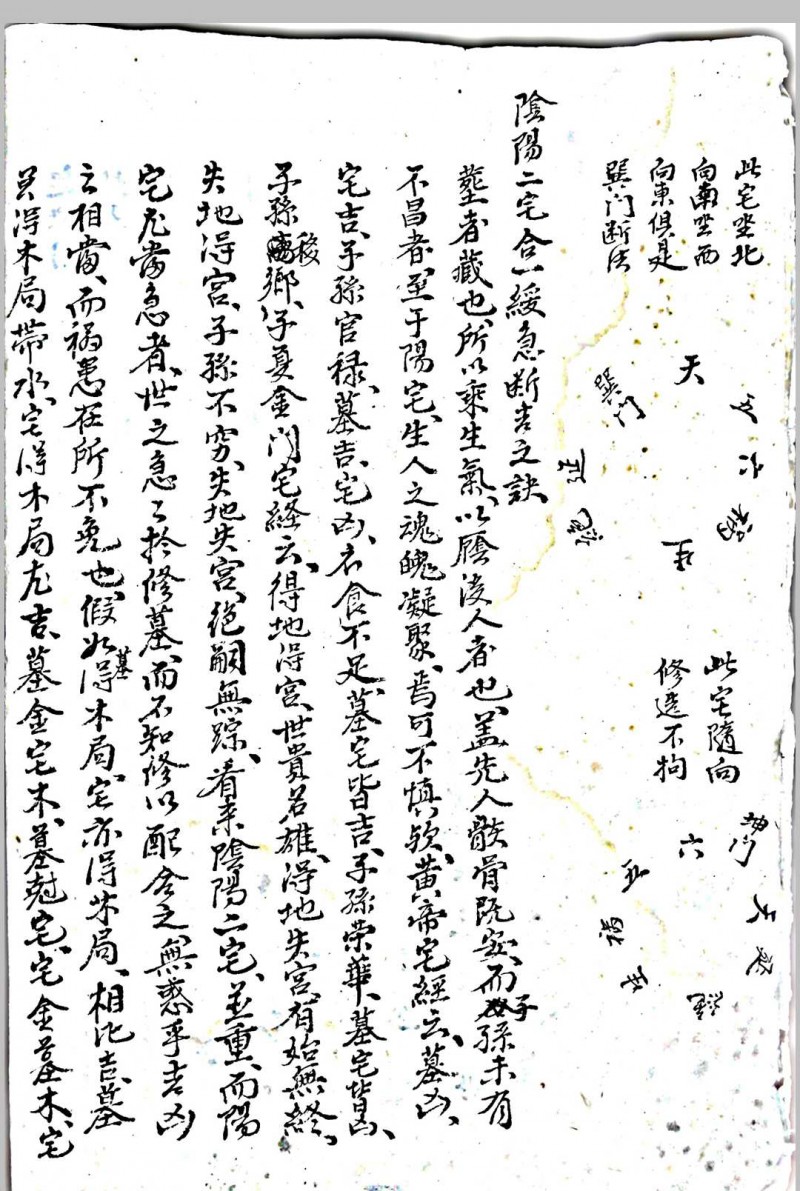 此宅坐北
向南坐西
向東俱是
巽門断法
天
五
六
禍
生
巽门
延
絕
此宅隨向
修造不拘
六
五
禍
天
陰陽二宅合一緩急断吉之訣
塟者藏也、所以乘生氣、以廕後人者也、盖先人骸骨既安、而子孫未有
不昌者、至于陽宅、生人之魂魄凝聚、焉可不慎欤、黄帝宅經云、墓凶、
宅吉、子孫官禄、墓吉、宅凶、衣食不足、墓宅皆吉、子孫荣華、墓宅皆凶、
子孫移鄉、子夏金门宅経云、得地得宫、世貴名雄、得地失宫、有始無終、
失地得宫、子孫不穷、失地失宫、绝嗣無踪、看来陰陽二宅、並重、而陽
宅尤當急者、世之急急於修墓、而不知修以配合之、無惑乎吉凶
之相當、而禍患在所不免也、假如墓得木局、宅亦得木局、相比吉、墓
得木局帶水、宅得木局尤吉、墓金宅木、墓尅宅、宅金墓木、宅